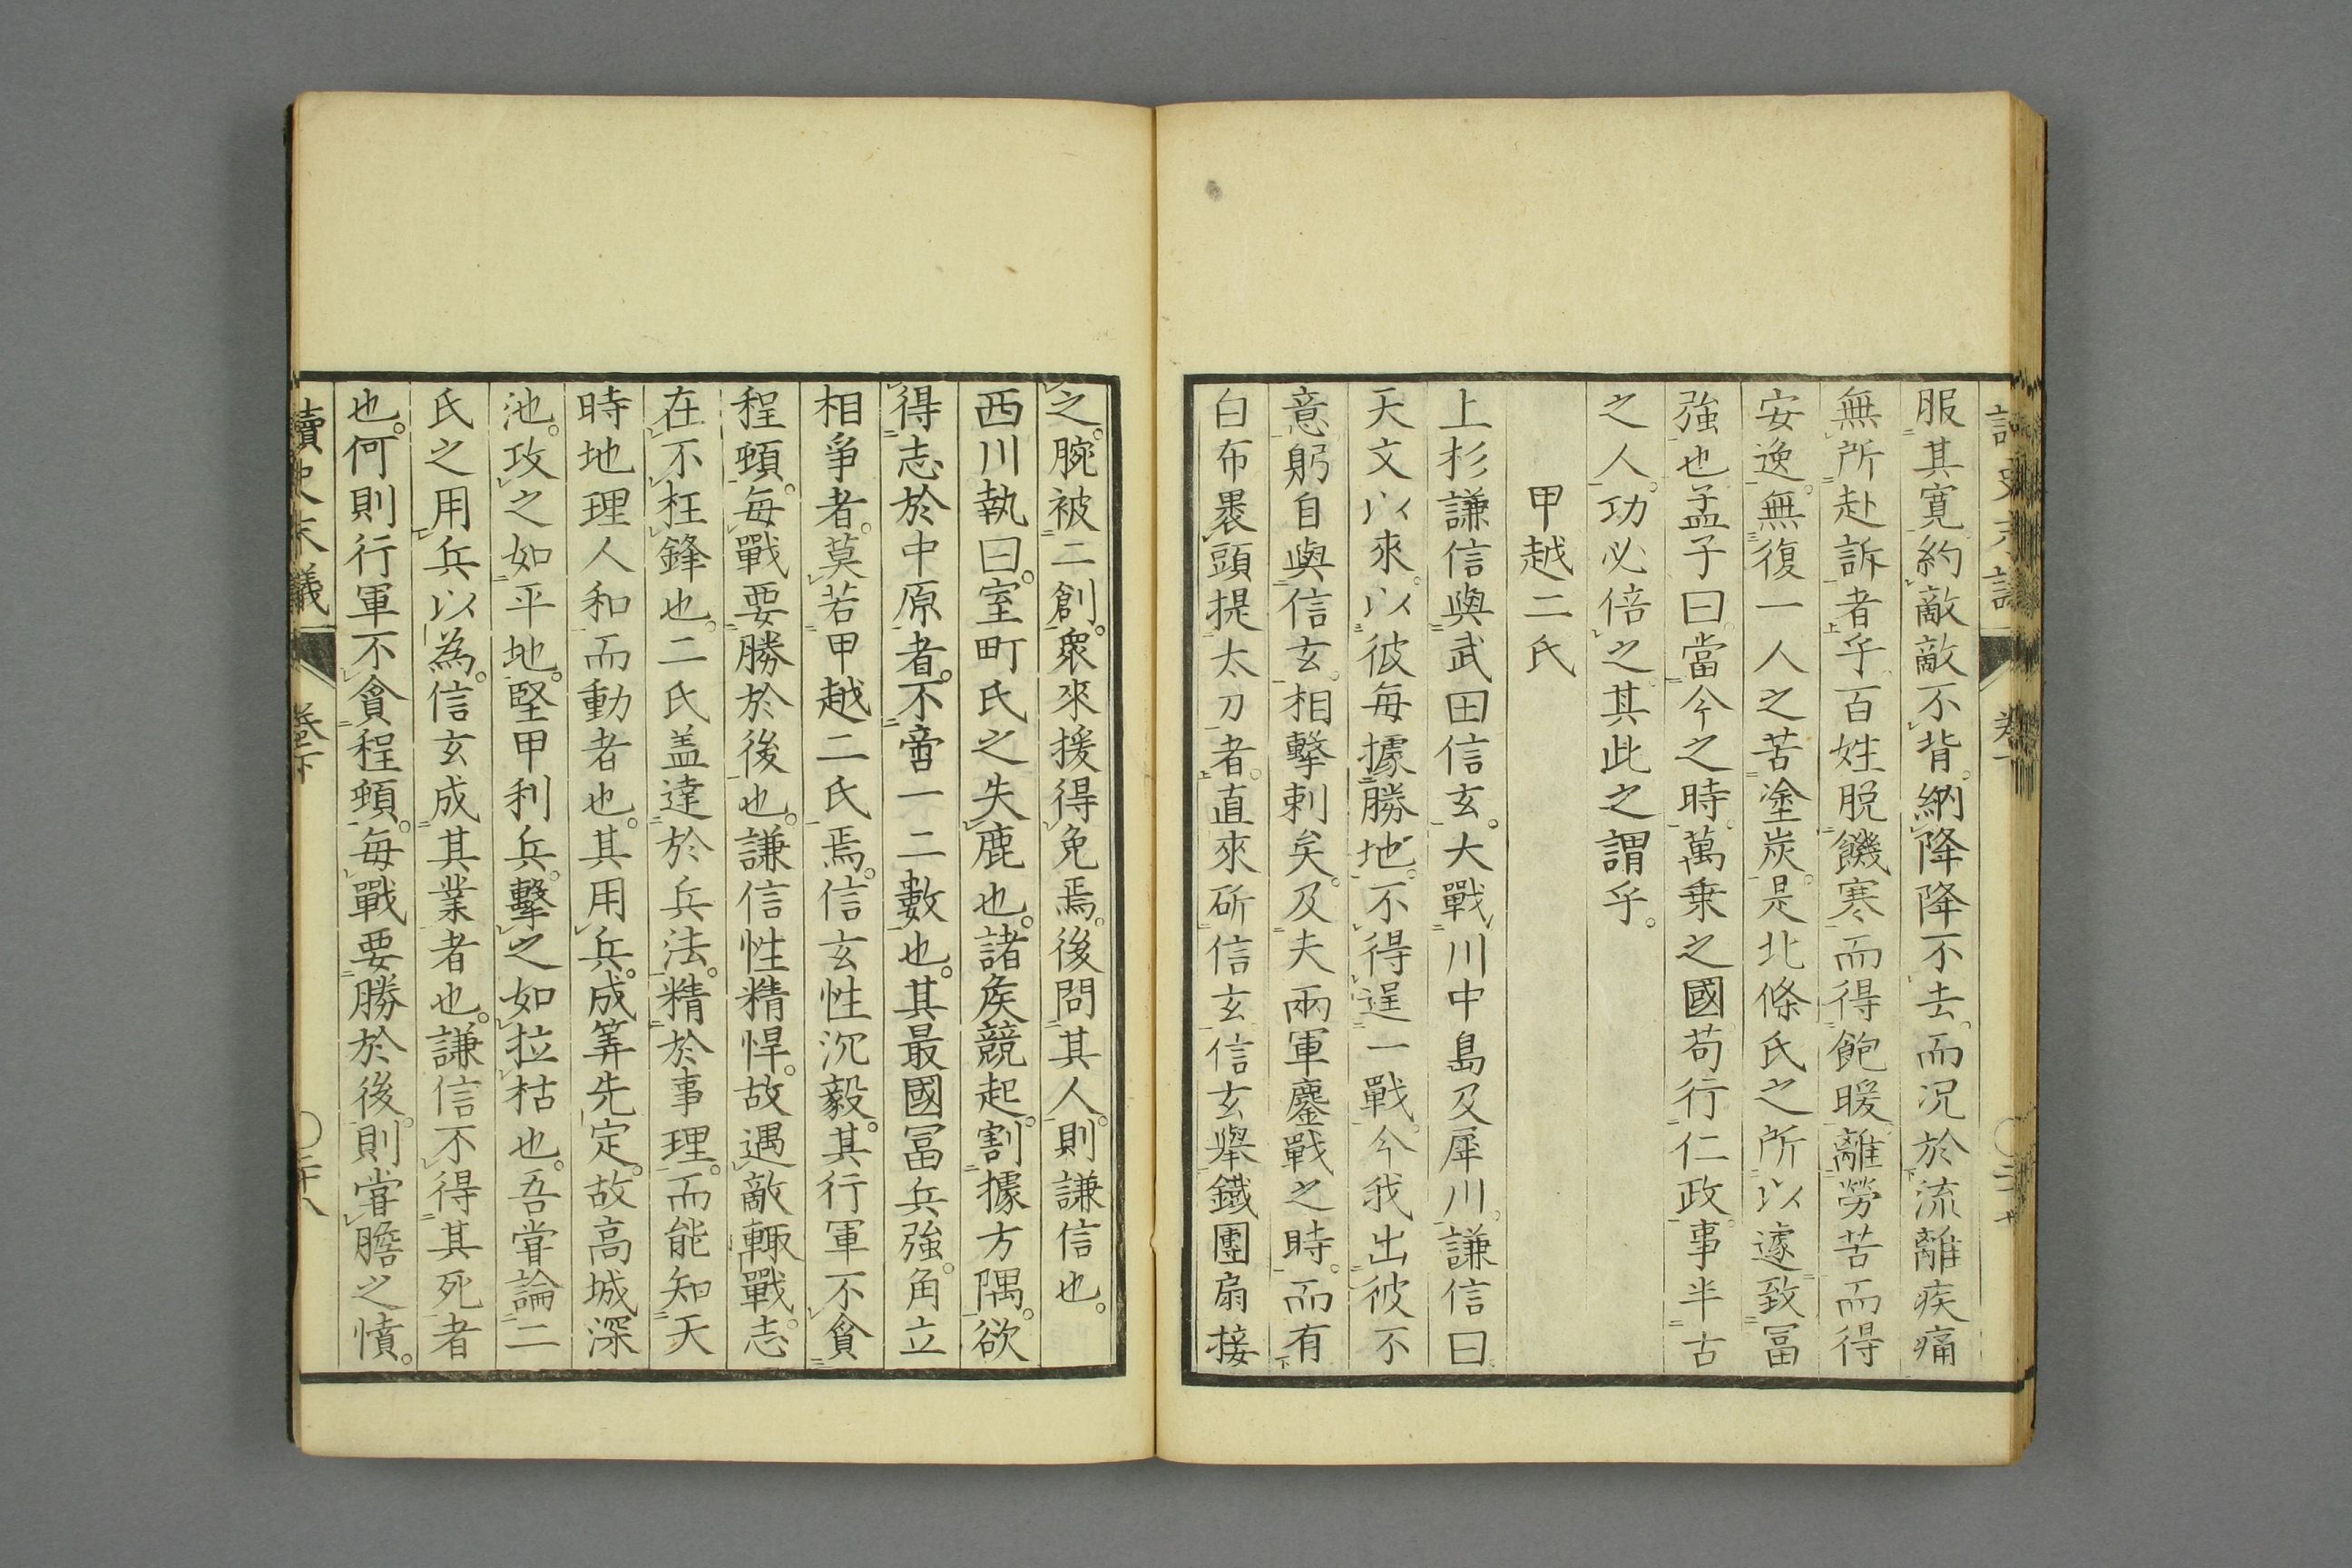 服其寛約敵敵不背納降降不去而况於流離疾痛
無所赴訴者乎百姓脱饑寒而得飽暖離勞苦而得
安逸。無復一人之苦塗炭。是北條氏之所以遽致冨
強也孟子曰當今之時。萬乗之國苟行仁政。事半古
之人。功必倍之其此之謂乎。
甲越二氏
上杉謙信與武田信玄。大戰川中島及犀川。謙信曰
天文以來。以彼毎據勝地。不得逞一戰。今我出彼不
意躬自與信玄。相擊刺矣。及夫兩軍鏖戰之時。而有
白布褁頭提太刀者。直來斫信玄信玄擧鐵團扇接
之。腕被二創。衆來援得免焉。後問其人。則謙信也。
西川執曰。室町氏之失鹿也。諸矦競起。割據方隅。欲
得志於中原者。不啻一二數也。其最國冨兵強。角立
相爭者。莫若甲越二氏焉。信玄性沉毅。其行軍不貪
程頓。毎戰要勝於後也。謙信性精悍。故遇敵輙戰。志
在不枉鋒也。二氏盖達於兵法。精於事理。而能知天
時地理人和而動者也。其用兵。成筭先定。故高城深
池。攻之如平地。堅甲利兵。擊之如拉枯也。吾甞論二
氏之用兵以為。信玄成其業者也。謙信不得其死者
也。何則行軍不貪程頓。毎戰要勝於後。則甞膽之憤。
讀史末議
卷下
〇二十八